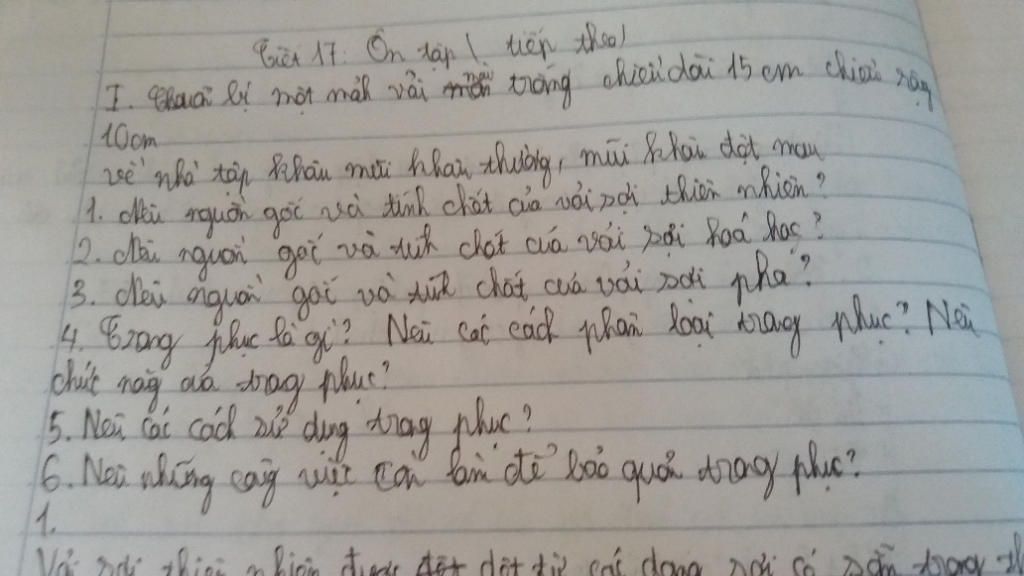 Tiết 17: Ôn tập ( tiếp theo)
I. Chuẩn bị một mảh vải màu trắng chiều dài 15 cm chiều rộng
10cm
về nhà tập khâu mũi khâu thường, mũi khâu đột mau
1. Nêu nguồn gốc và tính chất của vải sợi thiên nhiên?
2. Nêu nguồn gốc và tính chất của vải sợi hoá học?
3. Nêu nguồn gốc và tính chất của vải sợi pha?
4. Trang phục là gì? Nêu các cách phân loại trang phục? Nêu
chức năng của trang phục?
5. Nêu các cách sử dụng trang phục?
6. Nêu những công việc cần làm để bảo quản trang phục?
1.
Vải sợi thiên nhiên được dệt từ các dạng sợi có sẵn trong